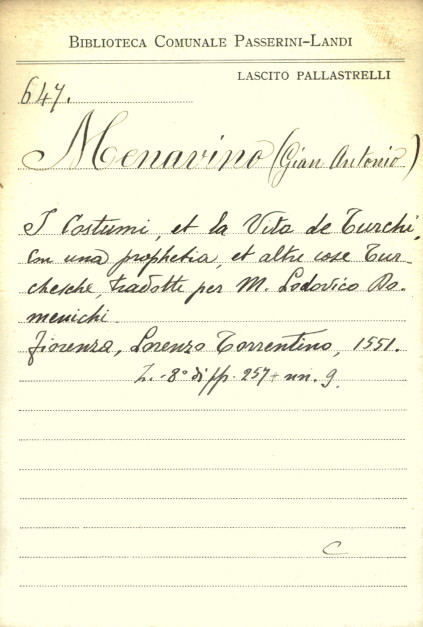 BIBLIOTECA COMUNALE PASSERINI-LANDI
LASCITO PALLASTRELLI
647.
Menavino (Gian Antonio)
I Costumi, et la Vita de Turchi,
con una prophetia, et altre cose Tur-
chesche, tradotte per M. Lodovico Do-
menichi.
Fiorenza, Lorenzo Torrentino, 1551.
8° di pp. 257 + nn. 9.
C